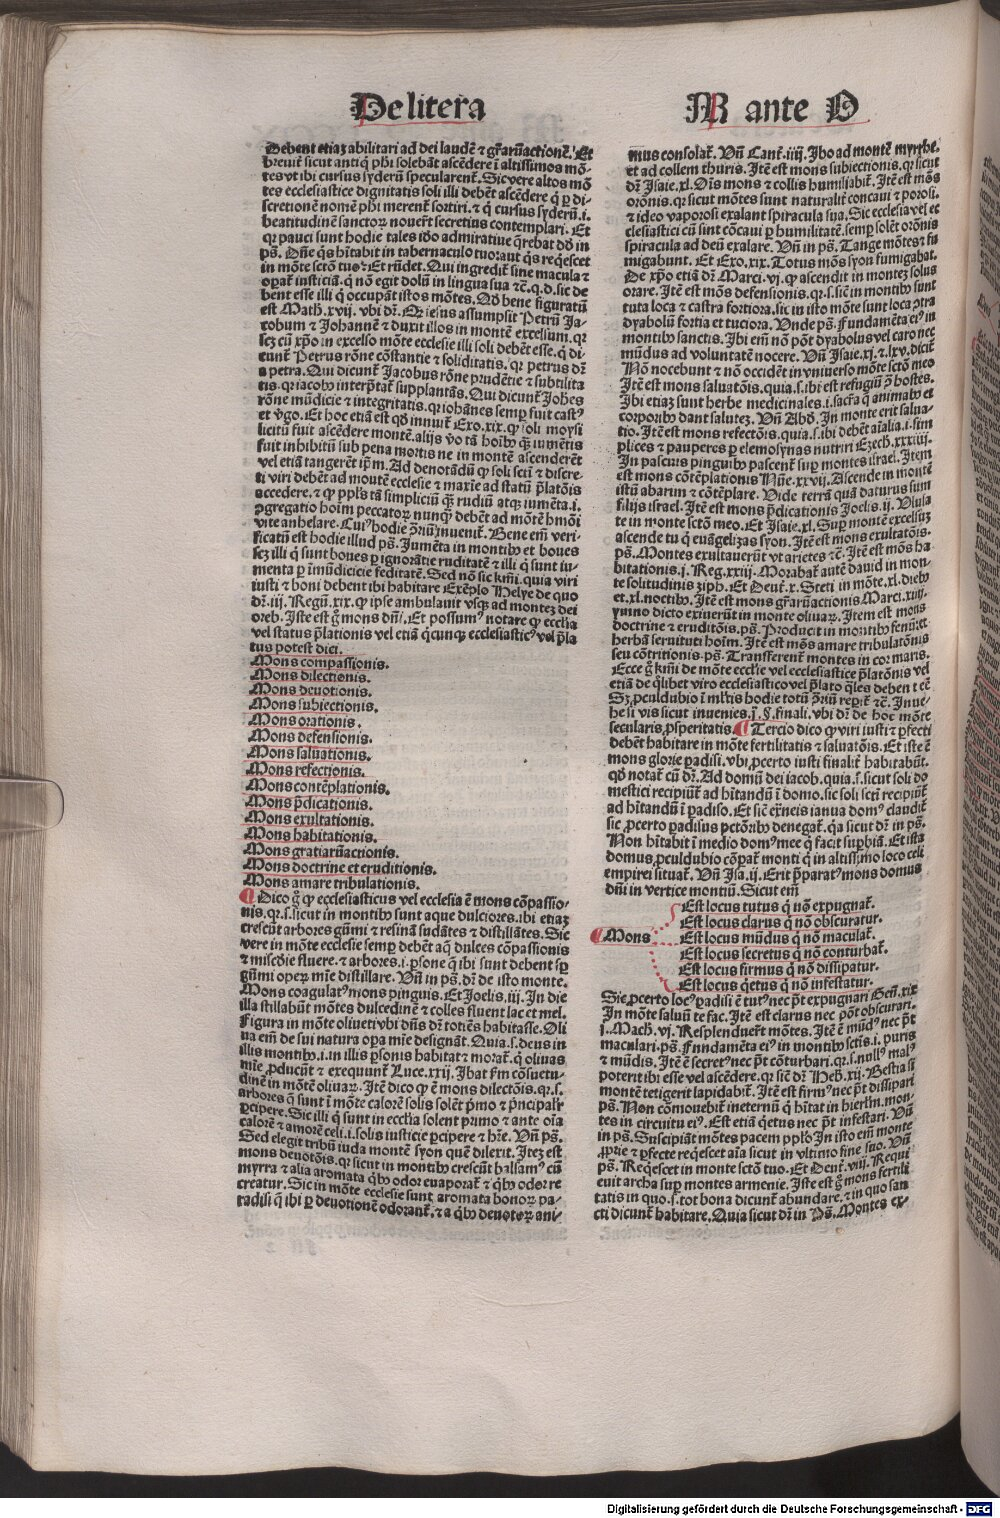 De litera
M ante O
Debent etiaz abilitari ad dei laudē ⁊ gr̄aꝝactionē. Et
breuit̓ sicut antiq̇ ph̄i solebāt ascēdere ī altissimos mō-
tes vt ibi cursus syderū specularent̓. Sic vere altos mō
tes ecclesiastice dignitatis soli illi debēt ascēdere q̇ ꝑ di-
scretionē nomē ph̄i merent̓ sortiri. ⁊ q̇ cursus syderū .i.
beatitudinē sanctoꝝ nouer̄t secretius contemplari. Et
qꝛ pauci sunt hodie tales iō admiratiue q̄rebat dd̄ in
ps̄. Dn̄e q̇s h̄itabit in tabernaculo tuo aut q̇s reqēscet
in mōte sctō tuo? Et rn̄det. Qui ingredit̓ sine macula ⁊
opat̓ iusticiā. q̇ nō egit dolū in lingua sua ⁊c̄. q.d. sic de
bent esse illi q̇ occupāt istos mōtes. Qd̓ bene figuratū
est Math̓. xvij. vbi dr̄. Qꝛ iesus assumpsit Petrū Ja-
cobum ⁊ Johannē ⁊ duxit illos in montē excelsum. qꝛ
sez cū xp̄o in excelso mōte ecclesie illi soli debēt esse. q̇ di-
cunt̓ Petrus rōne cōstantie ⁊ soliditatis. qꝛ petrus dr̄
a petra. Qui dicunt̓ Jacobus rōne prudētie ⁊ subtilita
tis. qꝛ iacob̓ interp̄tat̓ supplantās. Qui dicunt̓ Joh̄es
rōne mūdicie ⁊ integritatis. qꝛ ioh̄anes semꝑ fuit castꝰ
et v̓go. Et hoc etiā est qd̓ innuit̓ Exo. xix. qꝫ soli moysi
licitū fuit ascēdere montē. alijs v̓o tā hoībꝫ q̄ꝫ iumētis
fuit inhibitū sub pena mortis ne in montē ascenderēt
vel etiā tangerēt ip̄m. Ad denotādū qꝫ soli scti̅ ⁊ discre-
ti viri debēt ad montē ecclesie ⁊ maxīe ad statū p̄latōis
accedere. ⁊ qꝫ pplōs tā simpliciū q̄ꝫ rudiū atqꝫ iumēta .i.
ɔgregatio hoīm peccatoꝝ nunqꝫ debēt ad mōtē hmōi
vite anhelare. Cuiꝰ hodie ɔ̄riū inuenit̓. Bene em̄ veri-
ficatū est hodie illud ps̄. Jumēta in montibꝫ et boues
sez illi q̇ sunt boues ꝑ ignorātie ruditatē ⁊ illi q̇ sunt iu-
menta ꝑ īmūdicicie feditatē. Sed nō sic km̄i. quia viri
iusti ⁊ boni debent ibi habitare Exēplo Helye de quo
dr̄. iij. Regū. xix. qꝫ ipse ambulauit vsqꝫ ad montez dei
oreb. Iste est g̓ mons dn̄i. Et possumꝰ notare qꝫ eccl̓ia
vel status p̄lationis vel etiā q̇cunqꝫ ecclesiasticꝰ vel p̄la
tus potest dici.
Mons compassionis.
Mons dilectionis.
Mons deuotionis.
Mons subiectionis.
Mons orationis.
Mons defensionis.
Mons saluationis.
Mons refectionis.
Mons contēplationis.
Mons p̄dicationis.
Mons exultationis.
Mons habitationis.
Mons gratiaꝝactionis.
Mons doctrine et eruditionis.
Mons amare tribulationis.
Dico g̓ qꝫ ecclesiasticus vel ecclesia ē mons cōpassio-
nis. qꝛ .s. sicut in montibꝫ sunt aque dulciores. ibi etiaz
crescūt arbores gūmi ⁊ resinā sudātes ⁊ distillātes. Sic
vere in mōte ecclesie semꝑ debēt aq̄ dulces cōpassionis
⁊ mīsc̄die fluere. ⁊ arbores .i. ꝑsone q̄ ibi sunt debent sꝑ
gūmi operꝫ mīe distillare. Vn̄ in ps̄. dr̄ de isto monte.
Mons coagulatꝰ mons pinguis. Et Joelis. iij. In die
illa stillabūt mōtes dulcedinē ⁊ colles fluent lac et mel.
Figura in mōte oliueti vbi dn̄s dr̄ totiēs habitasse. Oli
ua em̄ de sui natura opa mīe designāt. Quia .s. deus in
illis montibꝫ .i. in illis ꝑsonis habitat ⁊ morat̓. q̄ oliuas
mīe ꝓducūt ⁊ exequunt̓ Luce. xxij. Ibat km̄ cōsuetu-
dinē in mōtē oliuaꝝ. Itē dico qꝫ ē mons dilectōis. qꝛ .s.
arbores q̄ sunt ī mōte calorē solis solēt p̄mo ⁊ p̄ncipalr̄
ꝑcipere. Sic illi q̇ sunt in eccl̓ia solent primo ⁊ ante oīa
calorē ⁊ amorē celi .i. solis iusticie ꝑcipere ⁊ h̄re. Vn̄ ps̄.
Sed elegit tribū iuda montē syon quē dilexit. Itez est
mons deuotōis. qꝛ sicut in montibꝫ crescūt balsamꝰ cū
myrra ⁊ alia aromata q̇bꝫ odoꝛ euaporat̓ ⁊ q̇bꝫ odore re
creatur. Sic in mōte ecclesie sunt aromata bonoꝝ pa-
radisi q̄ ibi ꝑ deuotionē odorant̓. ⁊ a q̇bꝫ deuotoꝝ ani-
mus consolat̓. Vn̄ Cant̓. iiij. Ibo ad montē myrrhe.
et ad collem thuris. Itē est mons subiectionis. qꝛ sicut
dr̄ Isaie. xl. Oīs mons ⁊ collis humiliabit̓. Itē est mōs
orōnis. qꝛ sicut mōtes sunt naturalit̓ concaui ⁊ porosi.
⁊ ideo vaporosi exalant spiracula sua. Sic ecclesia vel ec
clesiastici cū sunt cōcaui ꝑ humilitatē. semꝑ solēt orōnis
spiracula ad deū exalare. Vn̄ in ps̄. Tange mōtes ⁊ fu
migabunt. Et Exo. xix. Totus mōs syon fumigabat.
De xp̄o etiā dr̄ Marci. vj. qꝫ ascendit in montez solus
orare. Itē est mōs defensionis. qꝛ .s. sic̄ in montibꝫ sunt
tuta loca ⁊ castra fortiora. sic in isto mōte sunt loca ɔtra
dyabolū fortia et tuciora. Vnde ps̄. Fundamēta eiꝰ in
montibꝫ sanctis. Ibi em̄ nō pōt dyabolus vel caro nec
mūdus ad voluntatē nocere. Vn̄ Isaie. xj. ⁊. lxv. dicit̓
Nō nocebunt ⁊ nō occidēt in vniuerso mōte sctō meo
Itē est mons saluatōis. quia .s. ibi est refugiū ɔ̄ hostes.
Ibi etiaz sunt herbe medicinales .i. sacr̄a q̄ animabꝫ et
corporibꝫ dant salutez. Vn̄ Abd̓. In monte erit salua-
tio. Itē est mons refectōis. quia .s. ibi debēt aīalia .i. sim
plices ⁊ pauperes ꝑ elemosynas nutriri Ezech̓. xxxiiij.
In pascuis pinguibꝫ pascent̓ suꝑ montes israel. Item
est mons cōtēplationis Nūe. xxvij. Ascende in montē
istū abarim ⁊ cōtēplare. Vide terrā quā daturus sum
filijs israel. Itē est mons p̄dicationis Joelis. ij. Vlula
te in monte sctō meo. Et Isaie. xl. Suꝑ montē excelsuz
ascende tu q̇ euāgelizas syon. Itē est mons exultatōis.
ps̄. Montes exultauerūt vt arietes ⁊c̄. Itē est mōs ha
bitationis. j. Reg. xxiij. Morabat̓ autē dauid in mon-
te solitudinis ziph. Et Deut̓. x. Steti in mōte. xl. diebꝫ
et. xl. noctibꝫ. Itē est mons gr̄aꝝactionis Marci. xiiij.
ymno dicto exiuerūt in monte oliuaꝝ. Item est mons
doctrine ⁊ eruditōis. ps̄. Producit in montibꝫ fenū: et
herbā seruituti hoīm. Itē est mōs amare tribulatōnis
seu cōtritionis. ps̄. Transferent̓ montes in cor maris.
Ecce g̓ km̄i de mōte eccl̓ie vel ecclesiastice p̄latōnis vel
etiā de q̇libet viro ecclesiastico vel p̄lato q̄les debent eē
Sꝫ ꝓculdubio ī mlt̓is hodie totū ɔ̄riū reꝑit̓ ⁊c̄. Inue-
he si vis sicut inuenies. j̄. §. finali. vbi dr̄ de hoc mōte
secularis ꝓsperitatis. Tercio dico qꝫ viri iusti ⁊ ꝑfecti
debēt habitare in mōte fertilitatis ⁊ saluatōis. Et iste ē
mons glorie padisi. vbi ꝓcerto iusti finalit̓ habitabūt.
qd̓ notat̓ cū dr̄. Ad domū dei iacob. quia .s. sicut soli do
mestici recipiūt̓ ad h̄itandū ī domo. sic soli scti̅ recipiūt̓
ad h̄itandū ī padiso. Et sic̄ ex̄neis ianua domꝰ claudit̓
sic ꝓcerto padisus pctōribꝫ denegat̓. q̄a sicut dr̄ in ps̄.
Non h̄itabit ī medio domꝰ mee q̇ facit suꝑbiā. Et ista
domus ꝓculdubio cōpat̓ monti q̇ in altissimo loco celi
empirei situat̓. Vn̄ Isa. ij. Erit p̄paratꝰ mons domus
dn̄i in vertice montiū. Sicut em̄
Mons
Est locus tutus q̇ nō expugnat̓.
Est locus clarus q̇ nō obscuratur.
Est locus mūdus q̇ nō maculat̓.
Est locus secretus q̇ nō conturbat̓.
Est locus firmus q̇ nō dissipatur.
Est locus q̇etus q̇ nō infestatur.
Sic ꝓcerto locꝰ padisi ē tutꝰ nec pt̄ expugnari Gen̄. xix
In mōte saluū te fac. Itē est clarus nec pōt obscurari.
j. Mach̓. vj. Resplenduer̄t mōtes. Itē ē mūdꝰ nec pt̄
maculari. ps̄. Fundamēta eiꝰ in montibꝫ sctīs .i. puris
⁊ mūdis. Itē ē secretꝰ nec pt̄ cōturbari. qꝛ .s. nullꝰ malꝰ
poterit ibi esse vel ascēdere. qꝛ sic̄ dr̄ Heb̓. xij. Bestia si
montē tetigerit lapidabit̓. Itē est firmꝰ nec pt̄ dissipari
ps̄. Non cōmouebit̓ ineternū q̇ h̄itat in hierl̓m. mon-
tes in circuitu eiꝰ. Est etiā q̇etus nec pt̄ infestari. Vn̄
in ps̄. Suscipiāt mōtes pacem pplo̅ In isto em̄ monte
ꝓprie ⁊ ꝑfecte reqēscet aīa sicut in vltimo fine suo. Vn̄
ps̄. Reqēscet in monte sctō tuo. Et Deut̓. viij. Requi
euit archa suꝑ montes armenie. Iste est g̓ mons fertili
tatis in quo .s. tot bona dicunt̓ abundare. ⁊ in quo san
cti dicunt̓ habitare. Quia sicut dr̄ in Ps̄. Montes ex-
Digitalisierung gefördert durch die Deutsche Forschungsgemeinschaft - DFG